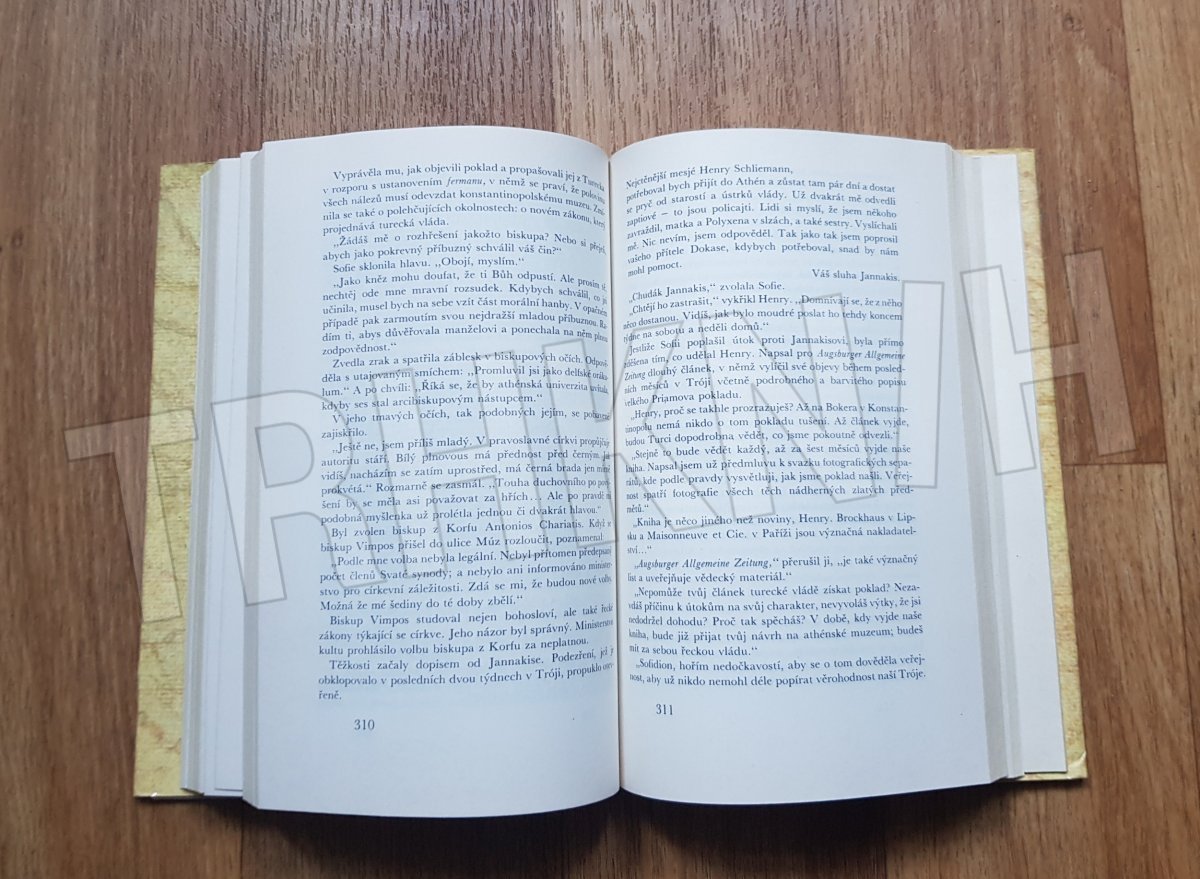 Vyprávěla mu, jak objevili poklad a propašovali jej z Turecka
v rozporu s ustanovením fermanu, v němž se praví, že polovina
všech nálezů musí odevzdat konstantinopolskému muzeu. Zmí-
nila se také o polehčujících okolnostech: o novém zákonu, který
projednává turecká vláda.
„Žádáš mě o rozhřešení jakožto biskupa? Nebo si přeješ,
abych jako pokrevný příbuzný schválil váš čin?“
Sofie sklonila hlavu. „Obojí, myslím.“
„Jako kněz mohu doufat, že ti Bůh odpustí. Ale prosím tě,
nechtěj ode mne mravní rozsudek. Kdybych schválil, co jsi
učinila, musel bych na sebe vzít část morální hanby. V opačném
případě pak zarmoutím svou nejdražší mladou příbuznou. Ra-
dím ti, abys důvěřovala manželovi a ponechala na něm plnou
zodpovědnost.“
Zvedla zrak a spatřila záblesk v biskupových očích. Odpově-
děla s utajovaným smíchem: „Promluvil jsi jako delfské oráku-
lum.“ A po chvíli: „Říká se, že by athénská univerzita uvítala,
kdyby ses stal arcibiskupovým nástupcem.“
V jeho tmavých očích, tak podobných jejím, se pobaveně
zajiskřilo.
„Ještě ne, jsem příliš mladý. V pravoslavné církvi propůjčuje
autoritu stáří. Bílý plnovous má přednost před černým. Jak
vidíš, nacházím se zatím uprostřed, má černá brada jen mírně
prokvétá.“ Rozmarně se zasmál. „Touha duchovního po pový-
šení by se měla asi považovat za hřích... Ale po pravdě mi
podobná myšlenka už prolétla jednou či dvakrát hlavou.“
Byl zvolen biskup z Korfu Antonios Chariatis. Když
biskup Vimpos přišel do ulice Múz rozloučit, poznamenal:
„Podle mne volba nebyla legální. Nebyl přítomen předepsaný
počet členů Svaté synody; a nebylo ani informováno minister-
stvo pro církevní záležitosti. Zdá se mi, že budou nové volby.
Možná že mé šediny do té doby zbělí.“
Biskup Vimpos studoval nejen bohosloví, ale také řecké
zákony týkající se církve. Jeho názor byl správný. Ministerstvo
kultu prohlásilo volbu biskupa z Korfu za neplatnou.
Těžkosti začaly dopisem od Jannakise. Podezření, jež je
obklopovalo v posledních dvou týdnech v Tróji, propuklo otev-
řeně.
310
Nejctěnější mesjé Henry Schliemann,
potřeboval bych přijít do Athén a zůstat tam pár dní a dostat
se pryč od starostí a ústrků vlády. Už dvakrát mě odvedli
zaptiové – to jsou policajti. Lidi si myslí, že jsem někoho
zavraždil, matka a Polyxena v slzách, a také sestry. Vyslíchali
mě. Nic nevím, jsem odpověděl. Tak jako tak jsem poprosil
vašeho přítele Dokase, kdybych potřeboval, snad by nám
mohl pomoct.
Váš sluha Jannakis.
„Chudák Jannakis,“ zvolala Sofie.
„Chtějí ho zastrašit,“ vykřikl Henry. „Domnívají se, že z něho
něco dostanou. Vidíš, jak bylo moudré poslat ho tehdy koncem
týdne na sobotu a neděli domů.“
Jestliže Sofii poplašil útok proti Jannakisovi, byla přímo
zděšena tím, co udělal Henry. Napsal pro Augsburger Allgemeine
Zeitung dlouhý článek, v němž vylíčil své objevy během posled-
ních měsíců v Tróji včetně podrobného a barvitého popisu
velkého Priamova pokladu.
„Henry, proč se takhle prozrazuješ? Až na Bokera v Konstan-
tinopolu nemá nikdo o tom pokladu tušení. Až článek vyjde,
budou Turci dopodrobna vědět, co jsme pokoutně odvezli.“
„Stejně to bude vědět každý, až za šest měsíců vyjde naše
kniha. Napsal jsem už předmluvu k svazku fotografických sepa-
rátů, kde podle pravdy vysvětluji, jak jsme poklad našli. Veřej-
nost spatří fotografie všech těch nádherných zlatých před-
mětů.“
„Kniha je něco jiného než noviny, Henry. Brockhaus v Lip-
sku a Maisonneuve et Cie. v Paříži jsou význačná nakladatel-
ství...“
„Augsburger Allgemeine Zeitung,“ přerušil ji, „je také význačný
list a uveřejňuje vědecký materiál.“
„Nepomůže tvůj článek turecké vládě získat poklad? Neza-
vdáš příčinu k útokům na svůj charakter, nevyvoláš výtky, že jsi
nedodržel dohodu? Proč tak spěcháš? V době, kdy vyjde naše
kniha, bude již přijat tvůj návrh na athénské muzeum; budeš
mít za sebou řeckou vládu.“
„Sofidion, hořím nedočkavostí, aby se o tom dověděla veřej-
nost, aby už nikdo nemohl déle popírat věrohodnost naší Tróje.
311
TRHKNIH